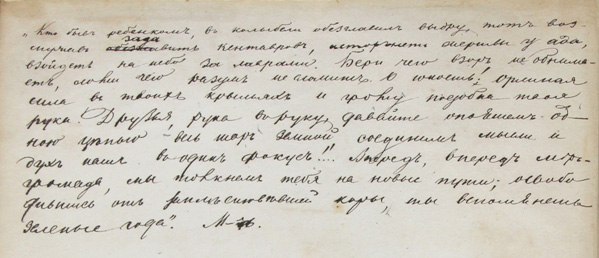 „Кто бывъ ребенкомъ, въ колыбели обезглавилъ выдру, тотъ воз-
мужавъ задавитъ Кентавровъ, исторгнетъ жертвы у ада,
взойдетъ на небо за лаврами. Бери чего взоръ не обнима-
етъ, ломи чего разумъ не сломитъ. О юность! орлиная
сила въ твоихъ крыльяхъ и грому подобна твоя
рука! Друзья рука въ руку, давайте опояшемъ од-
ною цѣпью – весь шаръ земной, соединимъ мысли и
духъ нашъ въ одинъ фокусъ!... Впередъ, впередъ міръ-
громада, мы толкнемъ тебя на новые пути; освобо
дившись отъ коры, ты вспомнишь
зеленые года".